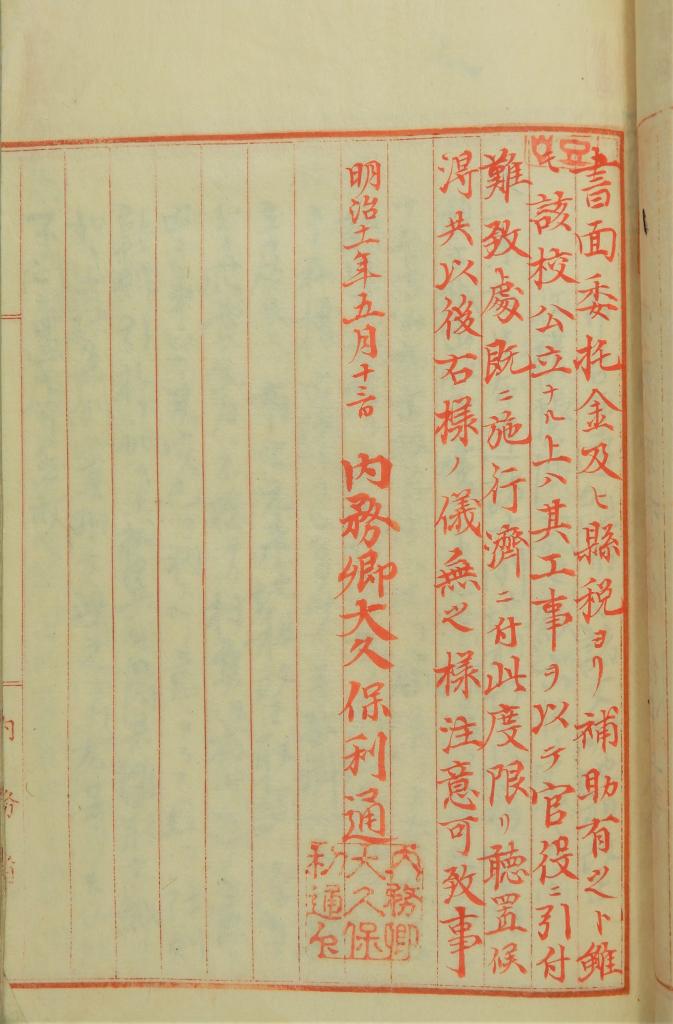 書面委托金及ヒ縣税ヨリ補助有之ト雖
モ該校公立ナル上ハ其工事ヲ以テ官役ニ引付
難致處既ニ施行濟ニ付此度限リ聴置候
得共以後右様ノ儀無之様注意可致事
明治十一年五月十三日 内務卿大久保利通
内務卿
大久保
利通印
内務省